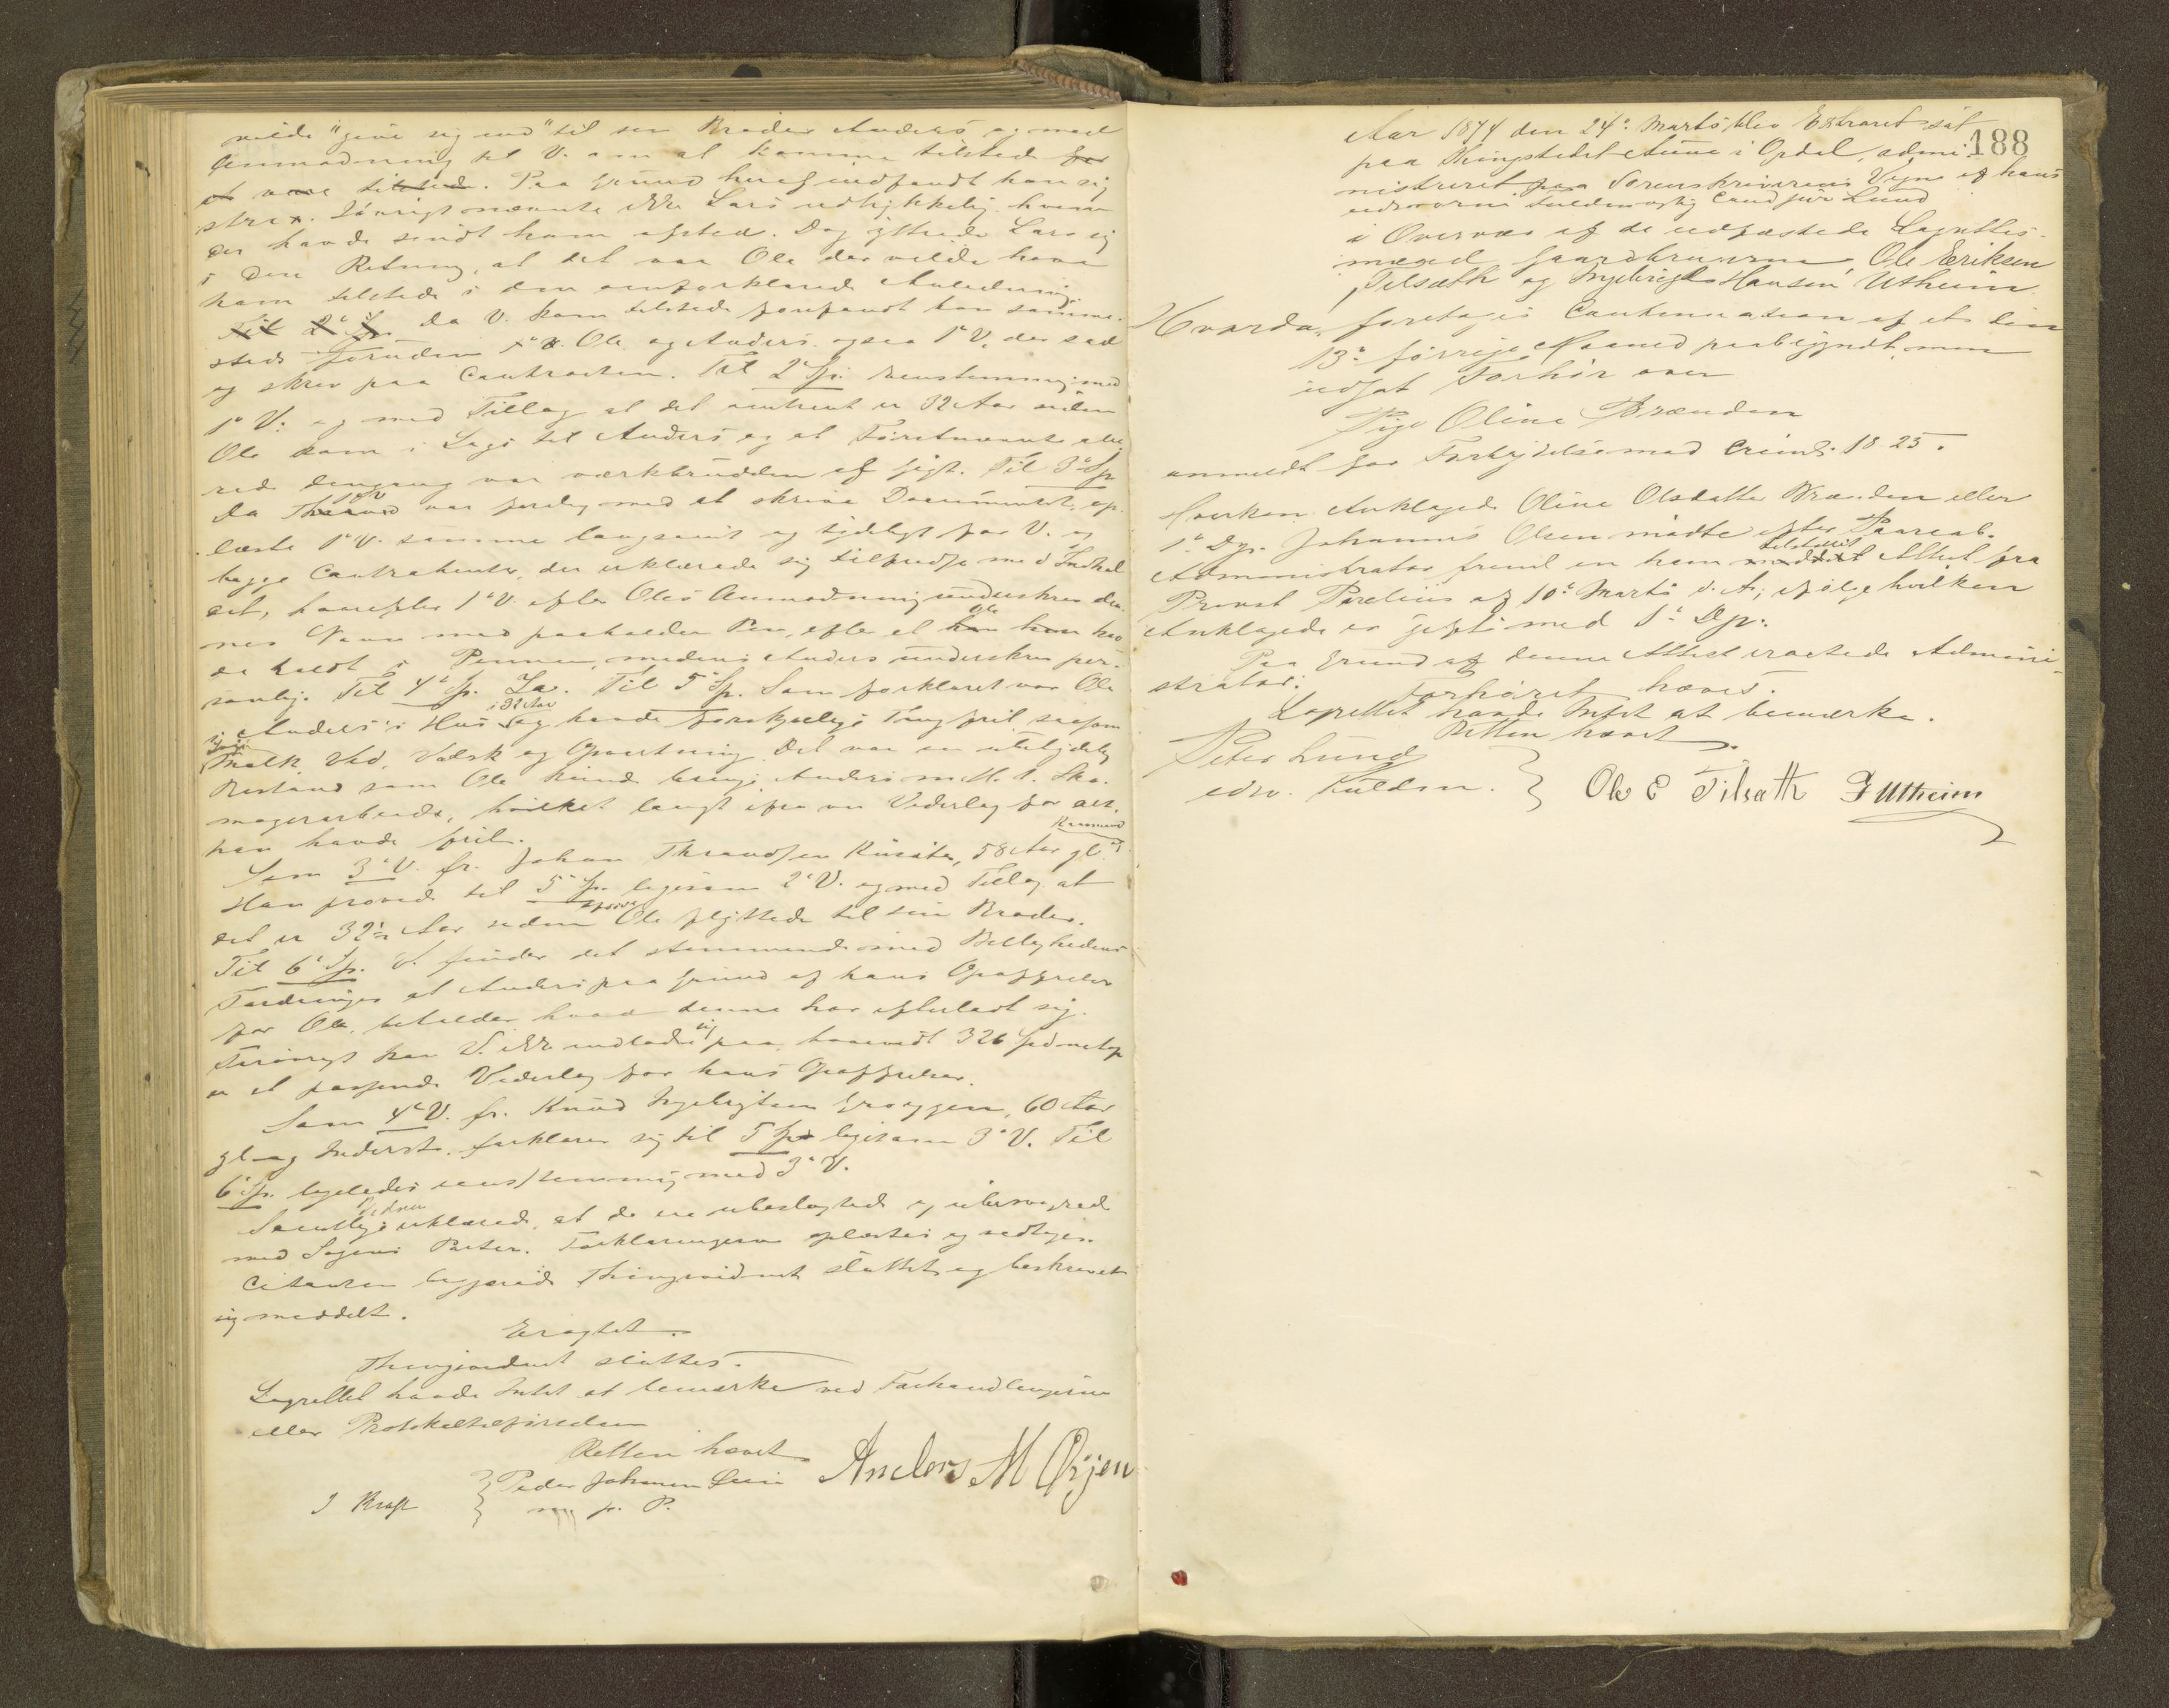 vilde "give sig ind" til sin Broder Anders og med
Anmodning til V. om at komme tilstede for
at være tilstede. Paa Grund heraf indfandt han sig
strax. Iøvrigt nævnte ikke Lars udtrykkelig hvem
der havde sendt ham afsted. Dog yttrede Lars sig
i den Retning, at det var Ole der vilde have
ham tilstede i den omforklarede Anledning.
Til 2' Sp. Da V. kom tilstede forefandt han samme-
steds foruden Ole og Anders ogsaa 1' V. der sad
og skrev paa Contracten. Til 2' Sp. eenstemmig med
1' V. og med Tillæg at det omtrent er 32 Aar siden
Ole kom i Lægd til Anders og at Førstnævnte alle-
rede dengang var værkbrudden af Gigt. Til 3' Sp.
da 1' V. var færdig med at skrive Documentet, op-
læste 1' V. samme langsomt og tydeligt for V. og
begge Contrahenter, der erklærede sig tilfreds med Indhol-
det, hvorefter 1' V. efter Oles Anmodning underskrev den-
nes Navn med paaholden Pen, efter at Ole hav-
de holdt i Pennen, medens Anders underskrev per-
sonlig. Til 4' Sp. Ja. Til 5' Sp. Som forklaret var Ole
i Anders's Hus i 32 Aar og havde forskjellige Ting frit saasom
Melk, Ved, Vadsk og Opvartning. Det var en ubetydelig
Bistand som Ole kunde bringe Anders m. H. t. Sko-
magerarbeide, hvilket langt ifra var Vederlag for det,
han havde frit.
Som 3' V. fr. Johan Throndsen Risæter, 58 Aar gl. Kaarmand
Han provede til 5' Sp. ligesom 2' V. og med Tillæg at
det er 32 1/2 Aar siden Ole flyttede til sin Broder.
Til 6' Sp. V. finder det stemmende med Billighedens
Fordringer at Anders paa Grund af hans Opoffrelser
for Ole, beholder hvad denne har efterladt sig.
Forøvrigt kan V. ikke indlade sig paa, hvorvidt 326 Spd netop
er et passende Vederlag for hans Opoffrelser.
Som 4' V. fr. Knud Ingebrigtsen Groeggen, 60 Aar
gl. og Inderst. forklarer sig til 5' Sp. ligesom 3' V. Til
6' Sp. ligeledes eenstemmig med 3' V.
Samtlige Vidner erklærede, at de ere ubeslægtede og ubesvogrede
med Sagens Parter. Forklaringerne oplæstes og vedtoges.
Citanten begjærede Thingsvidnet sluttet og beskrevet
sig meddelt.
Eragtet.
Thingsvidnet sluttes.
Lagrettet havde Intet at bemærke ved Forhandlingerne
eller Protokoltilførselen
Retten hævet
J Kraft
Peder Johnsen
m. p. P.
Anders M Øijen
188
Aar 1874 den 24' Marts blev Extraret sat
paa Thingstedet Aune i Opdal, admi-
nistreret paa Sorenskriverens Vegne af hans
edsvorne Fuldmægtig Cand jur Lund
i Overvær af de edfæstede Lagrettes-
mænd Gaardbrugerne Ole Eriksen
Tilsæth og Ingebrigt Hansen Utheim.
Hvorda foretoges Continuation af et den
13' forrige Maaned paabegyndt, men
udsat Forhør over
Pige Oline Brænden
anmeldt for Forbrydelse mod Criml. 18-25.
Hverken Anklagede Oline Olsdatter Brænden eller
1' Dp. Johannes Olsen mødte efter Paaraab.
Administrator freml. en ham meddelt tilstillet Attest fra
Provst Parelius af 10' Marts d. A., ifølge hvilken
Anklagede er gift med 1' Dp.
Paa Grund af denne Attest eragtede Admini-
strator:
Forhøret hæves.
Lagrettet havde Intet at bemærke.
Retten hævet
Peter Lund
edsv. Fuldm.
Ole E Tilsæth I Utheim